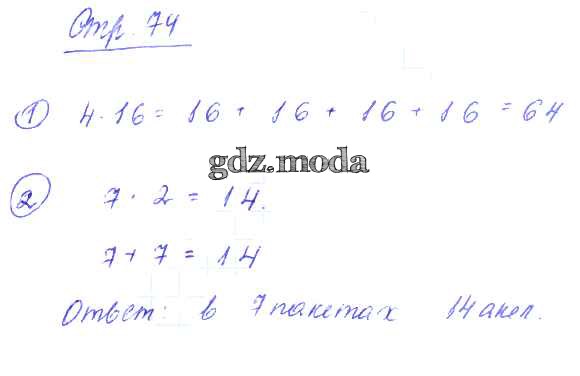 Стр. 74
1 4·16 = 16 + 16 + 16 + 16 = 64
gdz.moda
2 7 · 2 = 14.
7 + 7 = 14
Ответ: в 7 пакетах 14 апел.